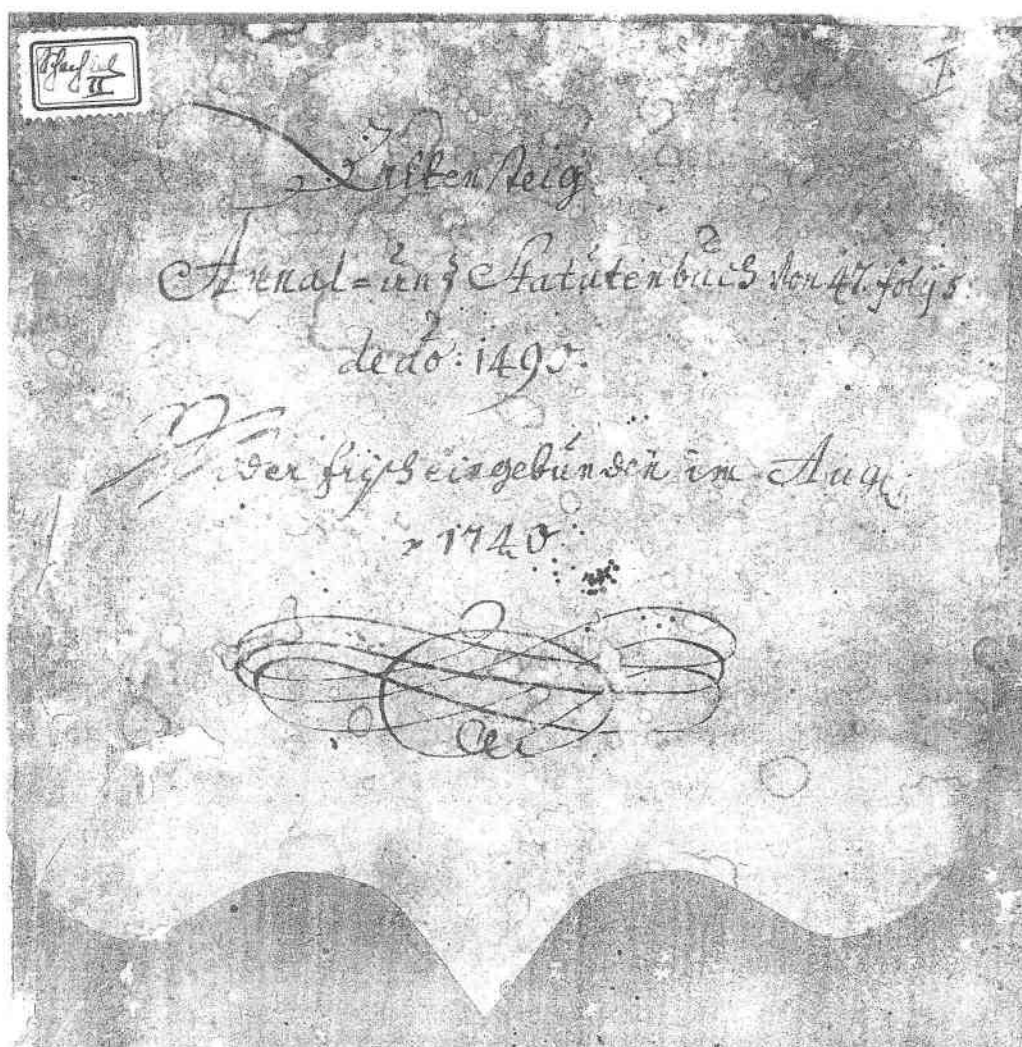 Schachtel
II
I
Lichtensteig
Annal- und Statutenbuch von 47. folijs
dedo: 1490.
der frisch eingebunden im Aug
1740.